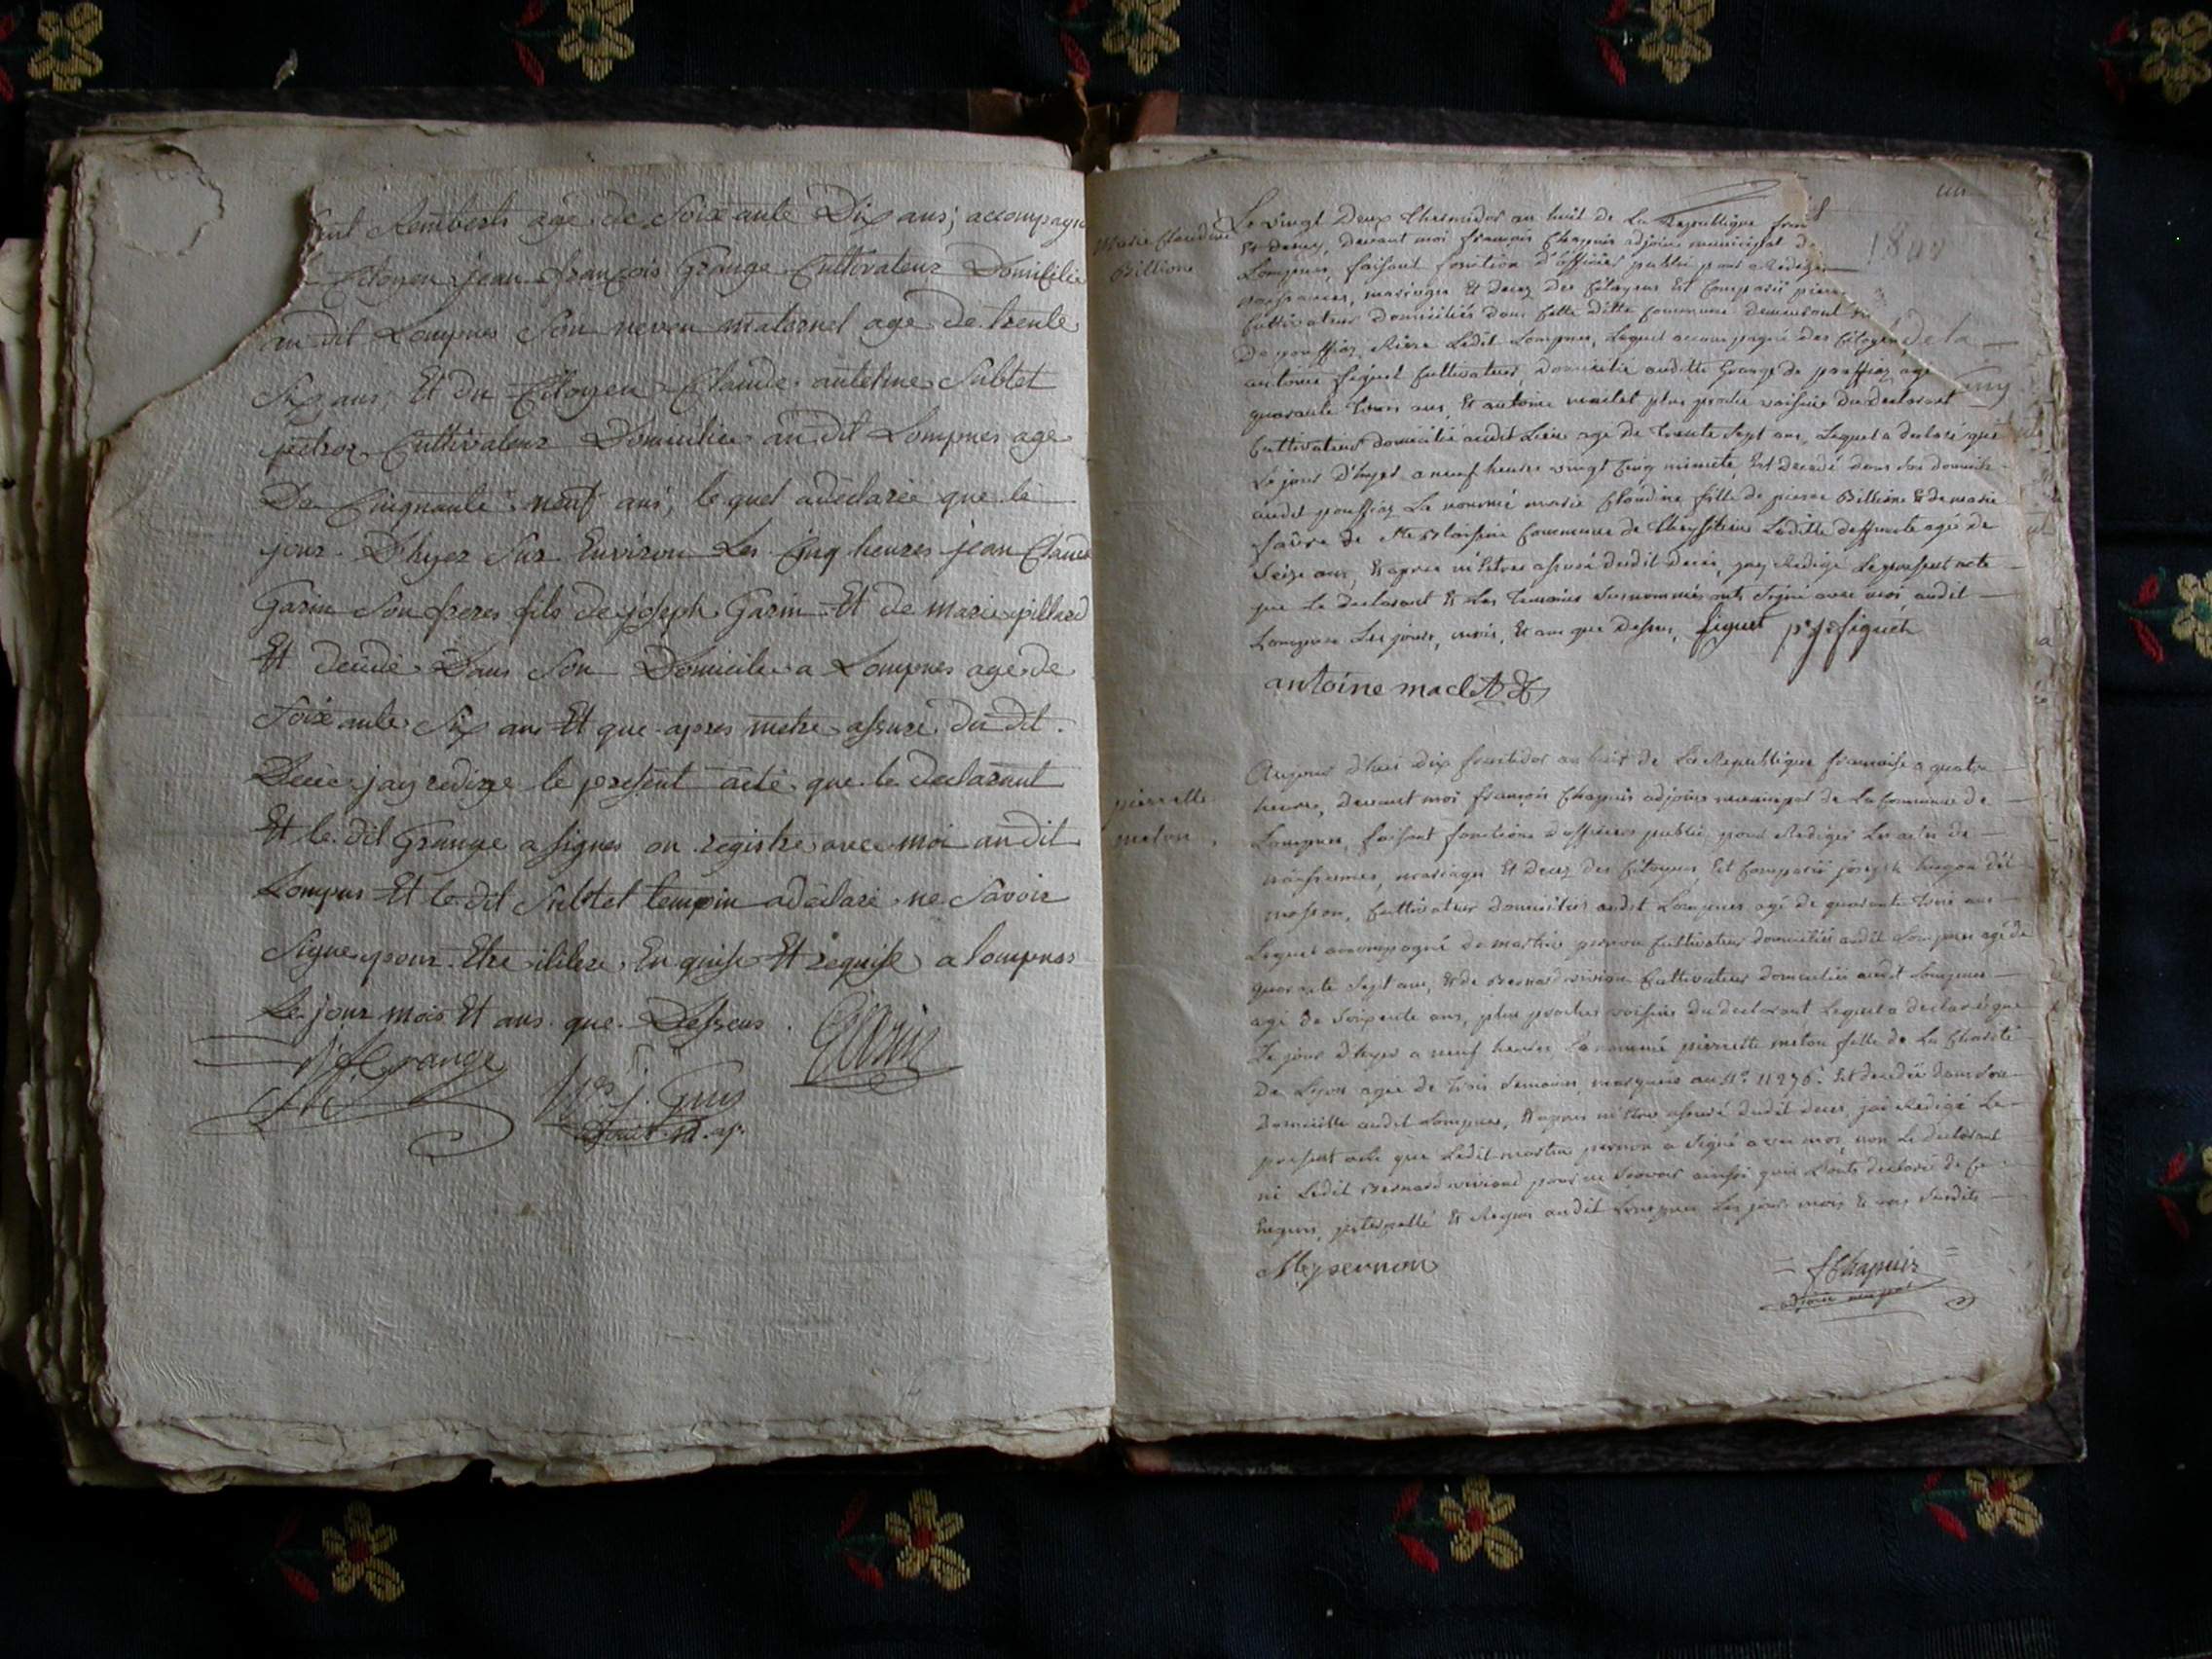 Rembert age de Soixante Dix ans; accompagn
Citoyen jean françois Grange Cultivateur Domicilie
au dit Lompnes Son neveu maternel age de trente
Six ans, Et du Citoyen Claude antelme Subtet
Cultivateur Domicilie au dit Lompnes age
De Cinquante neuf ans, le quel a declaree que le
jour D'hyer Sur Environ Les Cinq heures jean Claude
Garin Son frere fils de joseph Garin Et de marie pillard
Et decede Dans Son Domicile a Lompnes age de
Soixante Six ans Et que apres metre assure du dit
Decé jay redige le present acte que le declarant
Et le dit Grange a signes au registre avec moi au dit
Lompnes Et le dit Subtet temoin a declare ne Savoir
Signe pour Etre Enquise Et requise a lompnes
Le jour mois Et ans que Dessus.
Grange
Garin
marie Claudine
Billione
1800
Le vingt Deux thermidor an huit de La Republique fran
Et demy, devant moi françois Chapuis adjoint municipal de
Lompnes, faisant fonction d'officier public pour Rediger
naissances, mariages Et decez des Citoyens Est Comparû pierre
Cultivateur Domicilié dans Cette ditte Commune demeurant
De pouffiaz Riere Ledit Lompnes, Lequel accompagné des Citoyens de la
antoine figuet Cultivateur, domicilié auditte Grange de pouffiaz age
quarante trois ans, Et antoine maclet plus proche voisin du declarant
Cultivateur domicilié audit Lieu age de trente Sept ans, Lequel a declaré que
Le jour d'hyer a neuf heures vingt Cinq minute Est decedé dans Son domicile
audit pouffiaz La nommé marie Claudine fille de pierre Billione & de marie
favre de Commune de Laditte deffunte agée de
Seize ans, Et apres m'être assuré dudit decès, jay Redigé Le present acte
que Le declarant Et Les temoins Surnommés ont Signé avec moi audit
Lompnes Les jours, mois, Et an que dessus, figuet
antoine maclet
pierrette
meton
Aujourd'huis dix fructidor an huit de La Republique francaise a quatre
heures, devant moi françois Chapuis adjoint municipal de La Commune de
Lompnes, faisant fonctions d'officier public pour Rediger Les actes de
naissances, mariages Et decez des Citoyens Est Comparû joseph hugon dit
masson, Cultivateur domicilié audit Lompnes agé de quarante trois ans
Lequel accompagné de martin pernon Cultivateur domicilié audit Lompnes agé de
quarante Sept ans, Et de Bernard vivian Cultivateur domicilié audit Lompnes
agé de Soixante ans, plus proches voisins du declarant Lequel a declaré que
Le jour d'hyer a neuf heures La nommé pierrette meton fille de La Charité
De Lyon agee de trois Semaines marquée au N.° 11276. Est decedée dans Son
domicille audit Lompnes, Et apres m'être assuré dudit decès, jai Redigé Le
present acte que Ledit martin pernon a Signé avec moi, non Le declarant
ni Ledit Bernard viviand pour ne Scavoir ainsi qu'ils L'ont declaré de Ce
Enquis, interpellé Et Requis audit Lompnes Les jours mois Et ans Susdits
M pernon
f Chapuis
adjoint